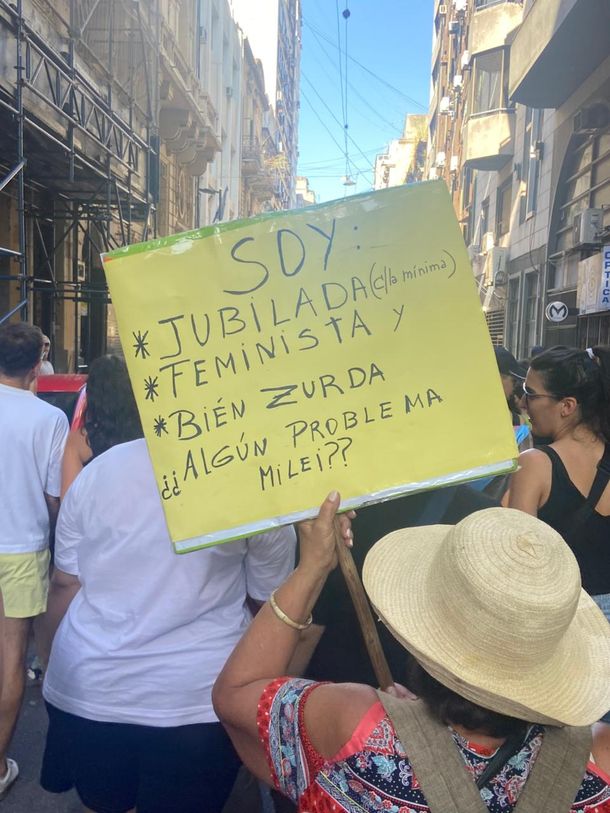 SOY:
* JUBILADA (c/la mínima)
* FEMINISTA Y
* BIÉN ZURDA
¿¿ALGÚN PROBLEMA
MILEI??
OPTICA
M